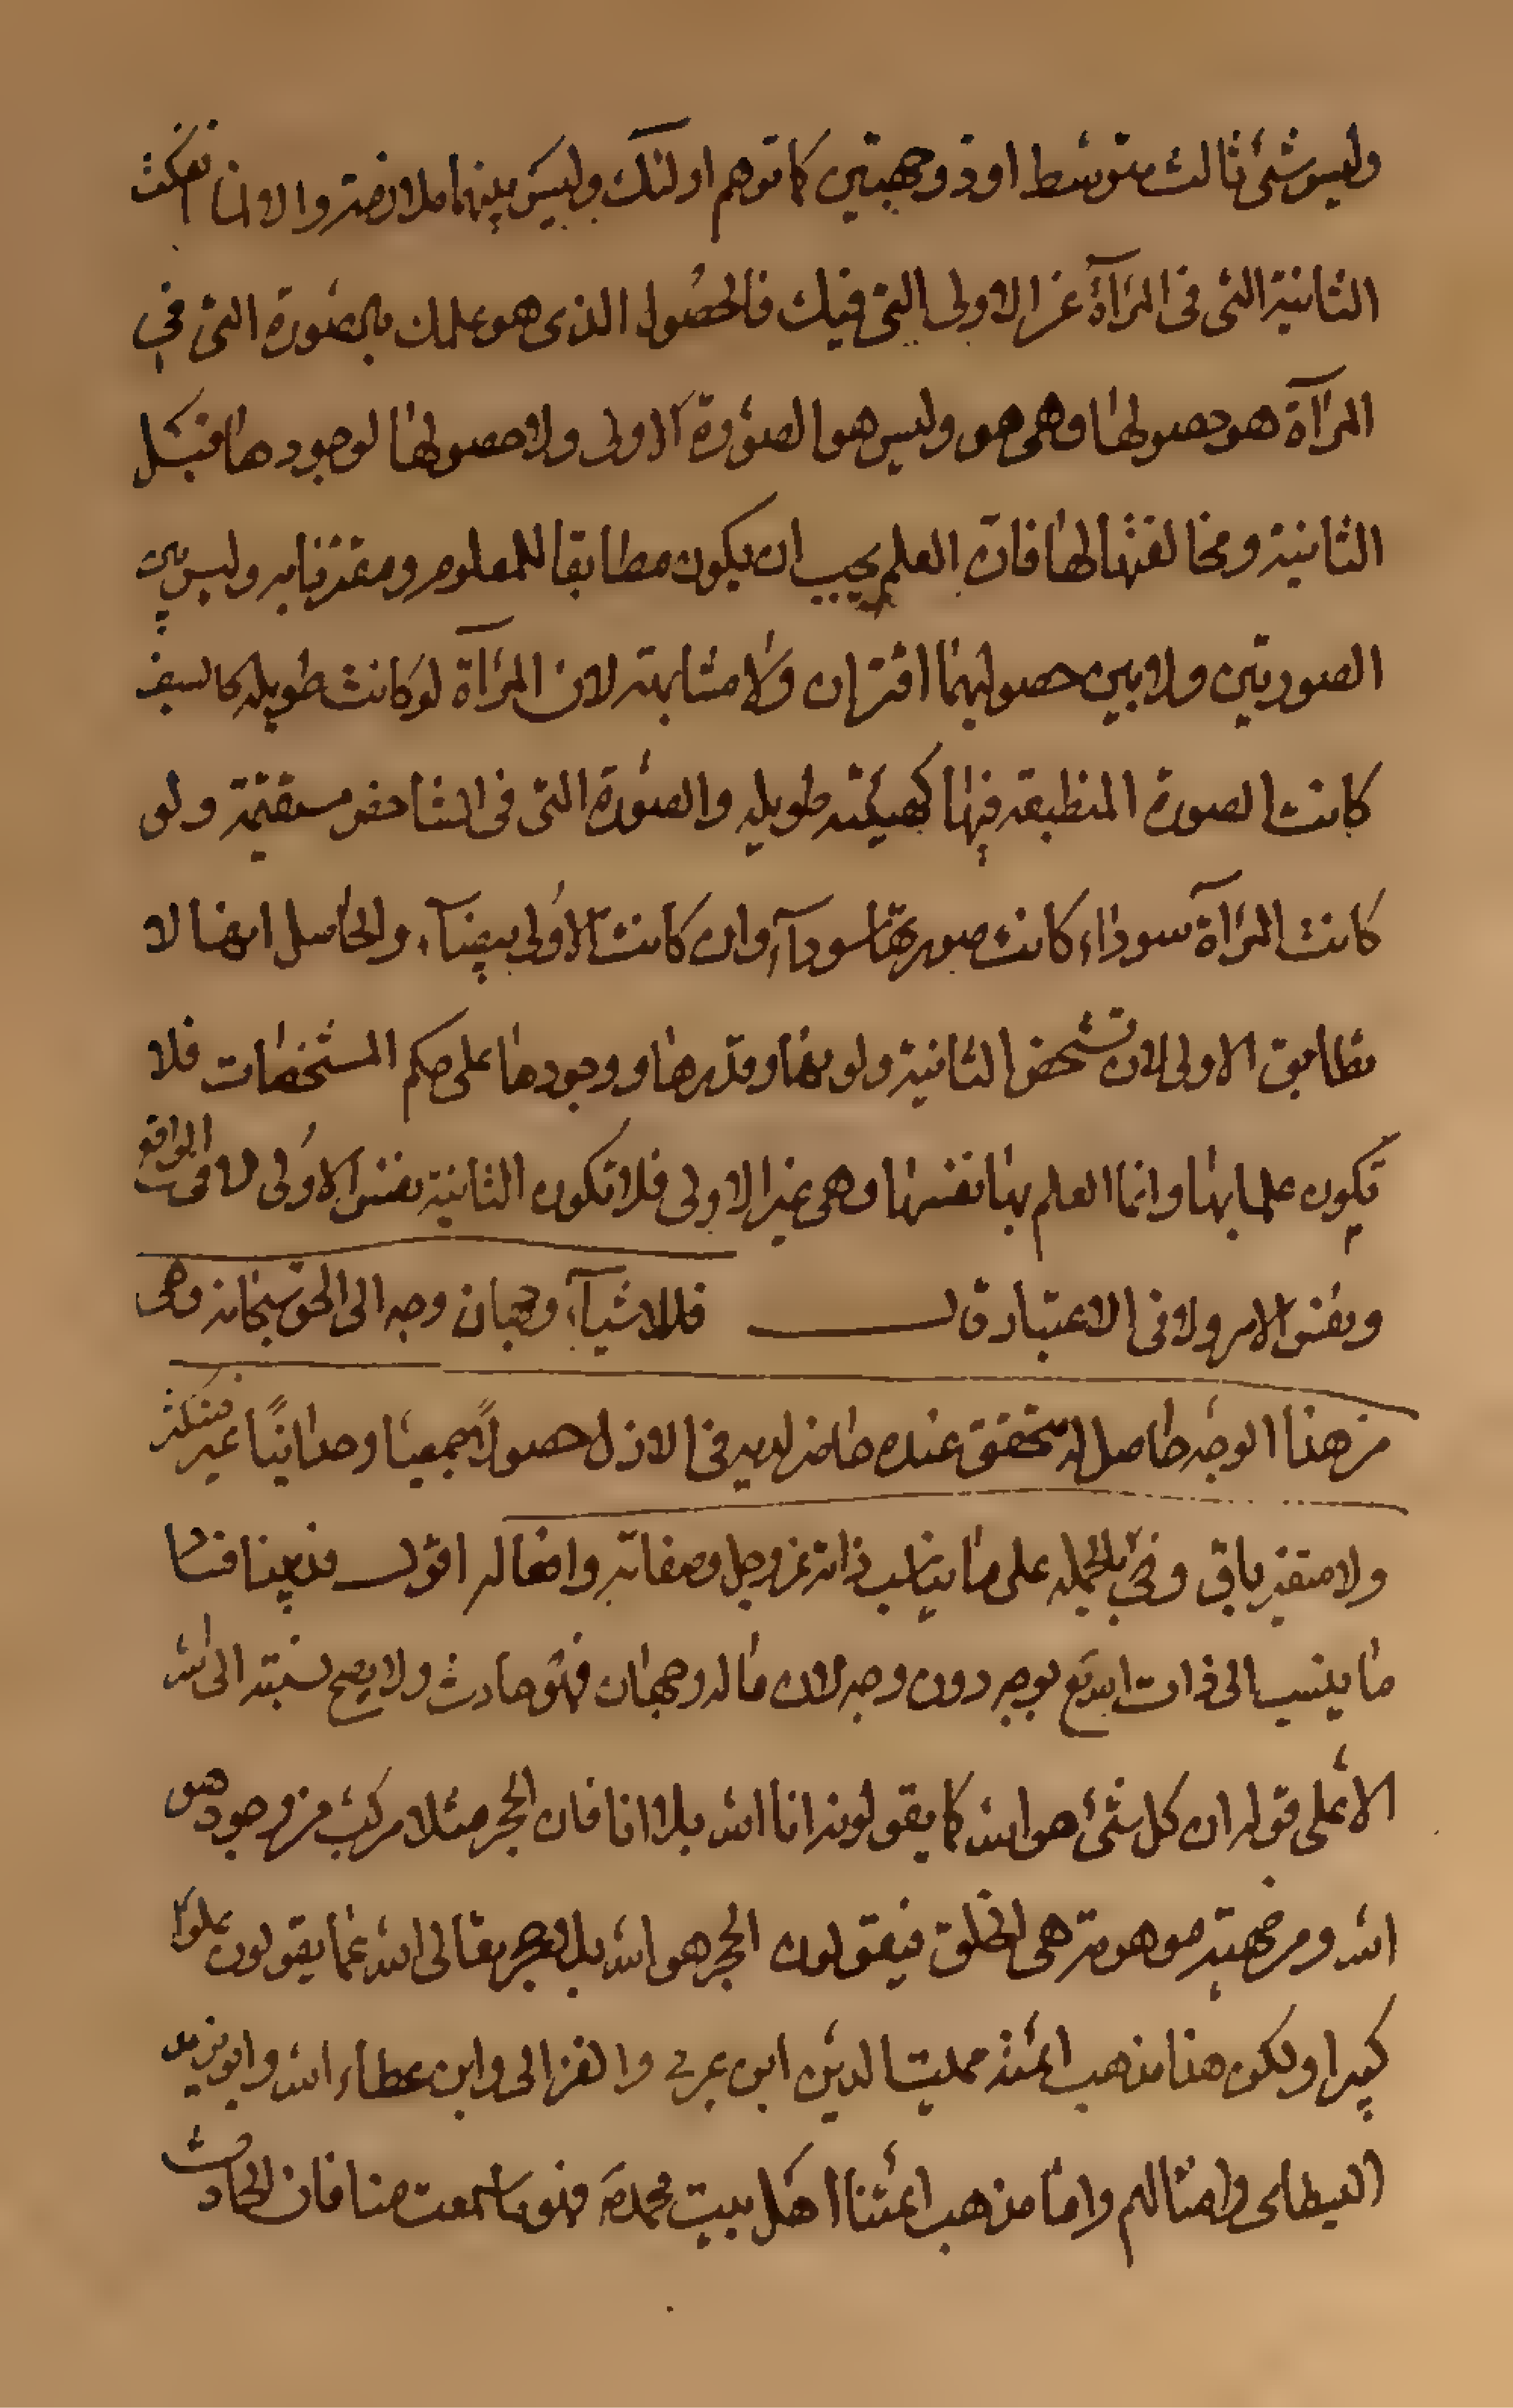 وليس شئ ثالث متوسط او ذو جهتين كما توهم اولئك وليس بينهما ملازمة والا لما انفكت
الثانية التى فى المرآة عن الاولى التى فيك فالحصول الذى هو علمك بالصورة التى فى
المرآة هو حصولها وهى هو وليس هو الصورة الاولى ولا حصولها لوجودها قبل
الثانية ومخالفتها لها فان العلم يجب ان يكون مطابقا للمعلوم ومقترنا به وليس بين
الصورتين ولا بين حصوليهما اقتران ولا مشابهة لان المرآة لو كانت طويله كالسيف
كانت الصورة المنطبعة فيها كهيئته طويله والصورة التى فى الشاخص مستقيمة ولو
كانت المرآة سوداء كانت صورتها سودآء وان كانت الاولى بيضآء والحاصل انها لا
تطابق الاولى لان تشخص الثانية ولونها وقدرها ووجودها على حكم المشخصات فلا
تكون علما بها وانما العلم بها نفسها وهى غير الاولى فلا تكون الثانية نفس الاولى لا فى الواقع
ونفس الامر ولا فى الاعتبار قال فللاشيآء وجهان وجه الى الحق سبحانه وهى
من هذا الوجه حاصل له متحقق عنده حاضر لديه فى الازل حصولاً جمعيا وحدانيًا غير متكثر
ولا متغير باق وفى بالجمله على ما يناسب ذاته عز وجل وصفاته وافعاله اقول قد بينا فساد
ما ينسب الى ذات الله تع بوجه دون وجه لان ما له وجهان فهو حادث ولا يصح نسبته الى الله
الا على قوله ان كل شئ هو الله كما يقولونه انا الله بلا انا فان الحجر مثلا مركب من وجود هو
الله ومن جهة موهومة هى الخلق فيقولون الحجر هو الله بلا حجر تعالى الله عما يقولون علوا
كبيرا ولكن هذا مذهب ائمته مميت الدين ابن عربى والغزالى وابن عطاء الله وابو يزيد
البسطامى وامثالهم واما مذهب ائمتنا اهل بيت محمد ص فهو ما سمعت منا فان الحادث